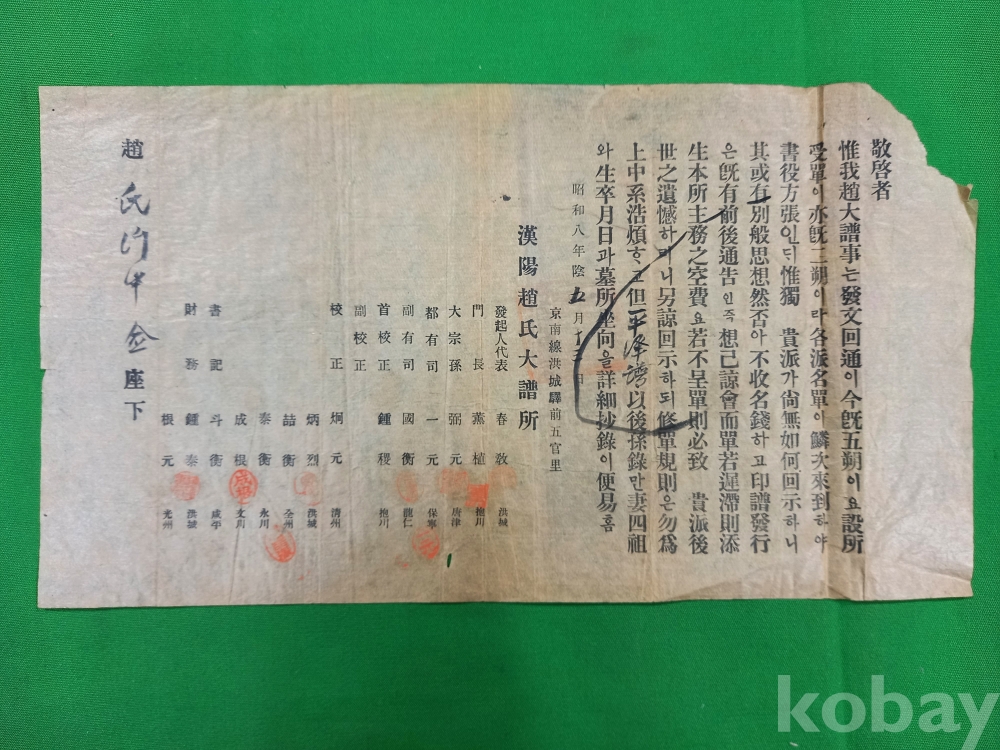 敬啓者
惟我趙大譜事는發文回通이今旣五朔이요設所
受單이亦旣二朔이라各派名單이鱗次來到하야
書役方張인디惟獨 貴派가尙無如何回示하니
其或有別般思想然否아不收名錢하고印譜發行
은旣有前後通告인즉想已諒會而單若遲滯則添
生本所主務之空費요若不呈單則必致 貴派後
世之遺憾하미니另諒回示하되修單規則은勿爲
上中系浩煩하고但平澤譜以後孫錄만妻四祖
와生卒月日과墓所坐向을詳細抄錄이便易홈
昭和八年陰五月十三日
京南線洪城驛前五官里
漢陽趙氏大譜所
發起人代表 春敎 洪城
門長 薰植 抱川
大宗孫 弼元 唐津
都有司 一元 保寧
副有司 國衡 龍仁
首校正 鍾稷 抱川
副校正
校正 炯元 淸州
炳烈 洪城
喆衡 全州
泰衡 永川
成根 文川
書記 斗衡 咸平
財務 鍾泰 洪城
根元 光州
趙氏門中僉座下
kobay